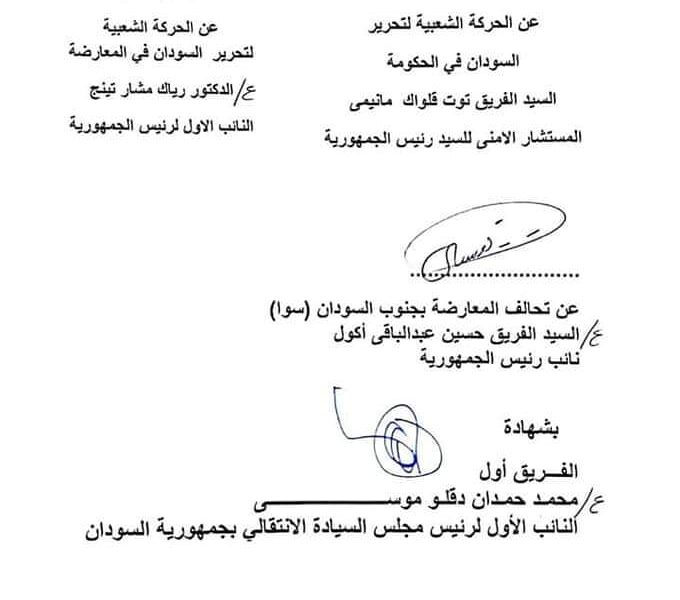 عن الحركة الشعبية لتحرير
السودان في الحكومة
السيد الفريق توت قلواك مانيمى
المستشار الامنى للسيد رئيس الجمهورية
عن الحركة الشعبية
لتحرير السودان في المعارضة
ع/الدكتور رياك مشار تينج
النائب الاول لرئيس الجمهورية
عن تحالف المعارضة بجنوب السودان (سوا)
ع/السيد الفريق حسين عبدالباقى أكول
نائب رئيس الجمهورية
بشهادة
الفـــريق أول
ع/محمد حمدان دقلـو موســـــــــــــــى
النائب الأول لرئيس مجلس السيادة الانتقالي بجمهورية السودان